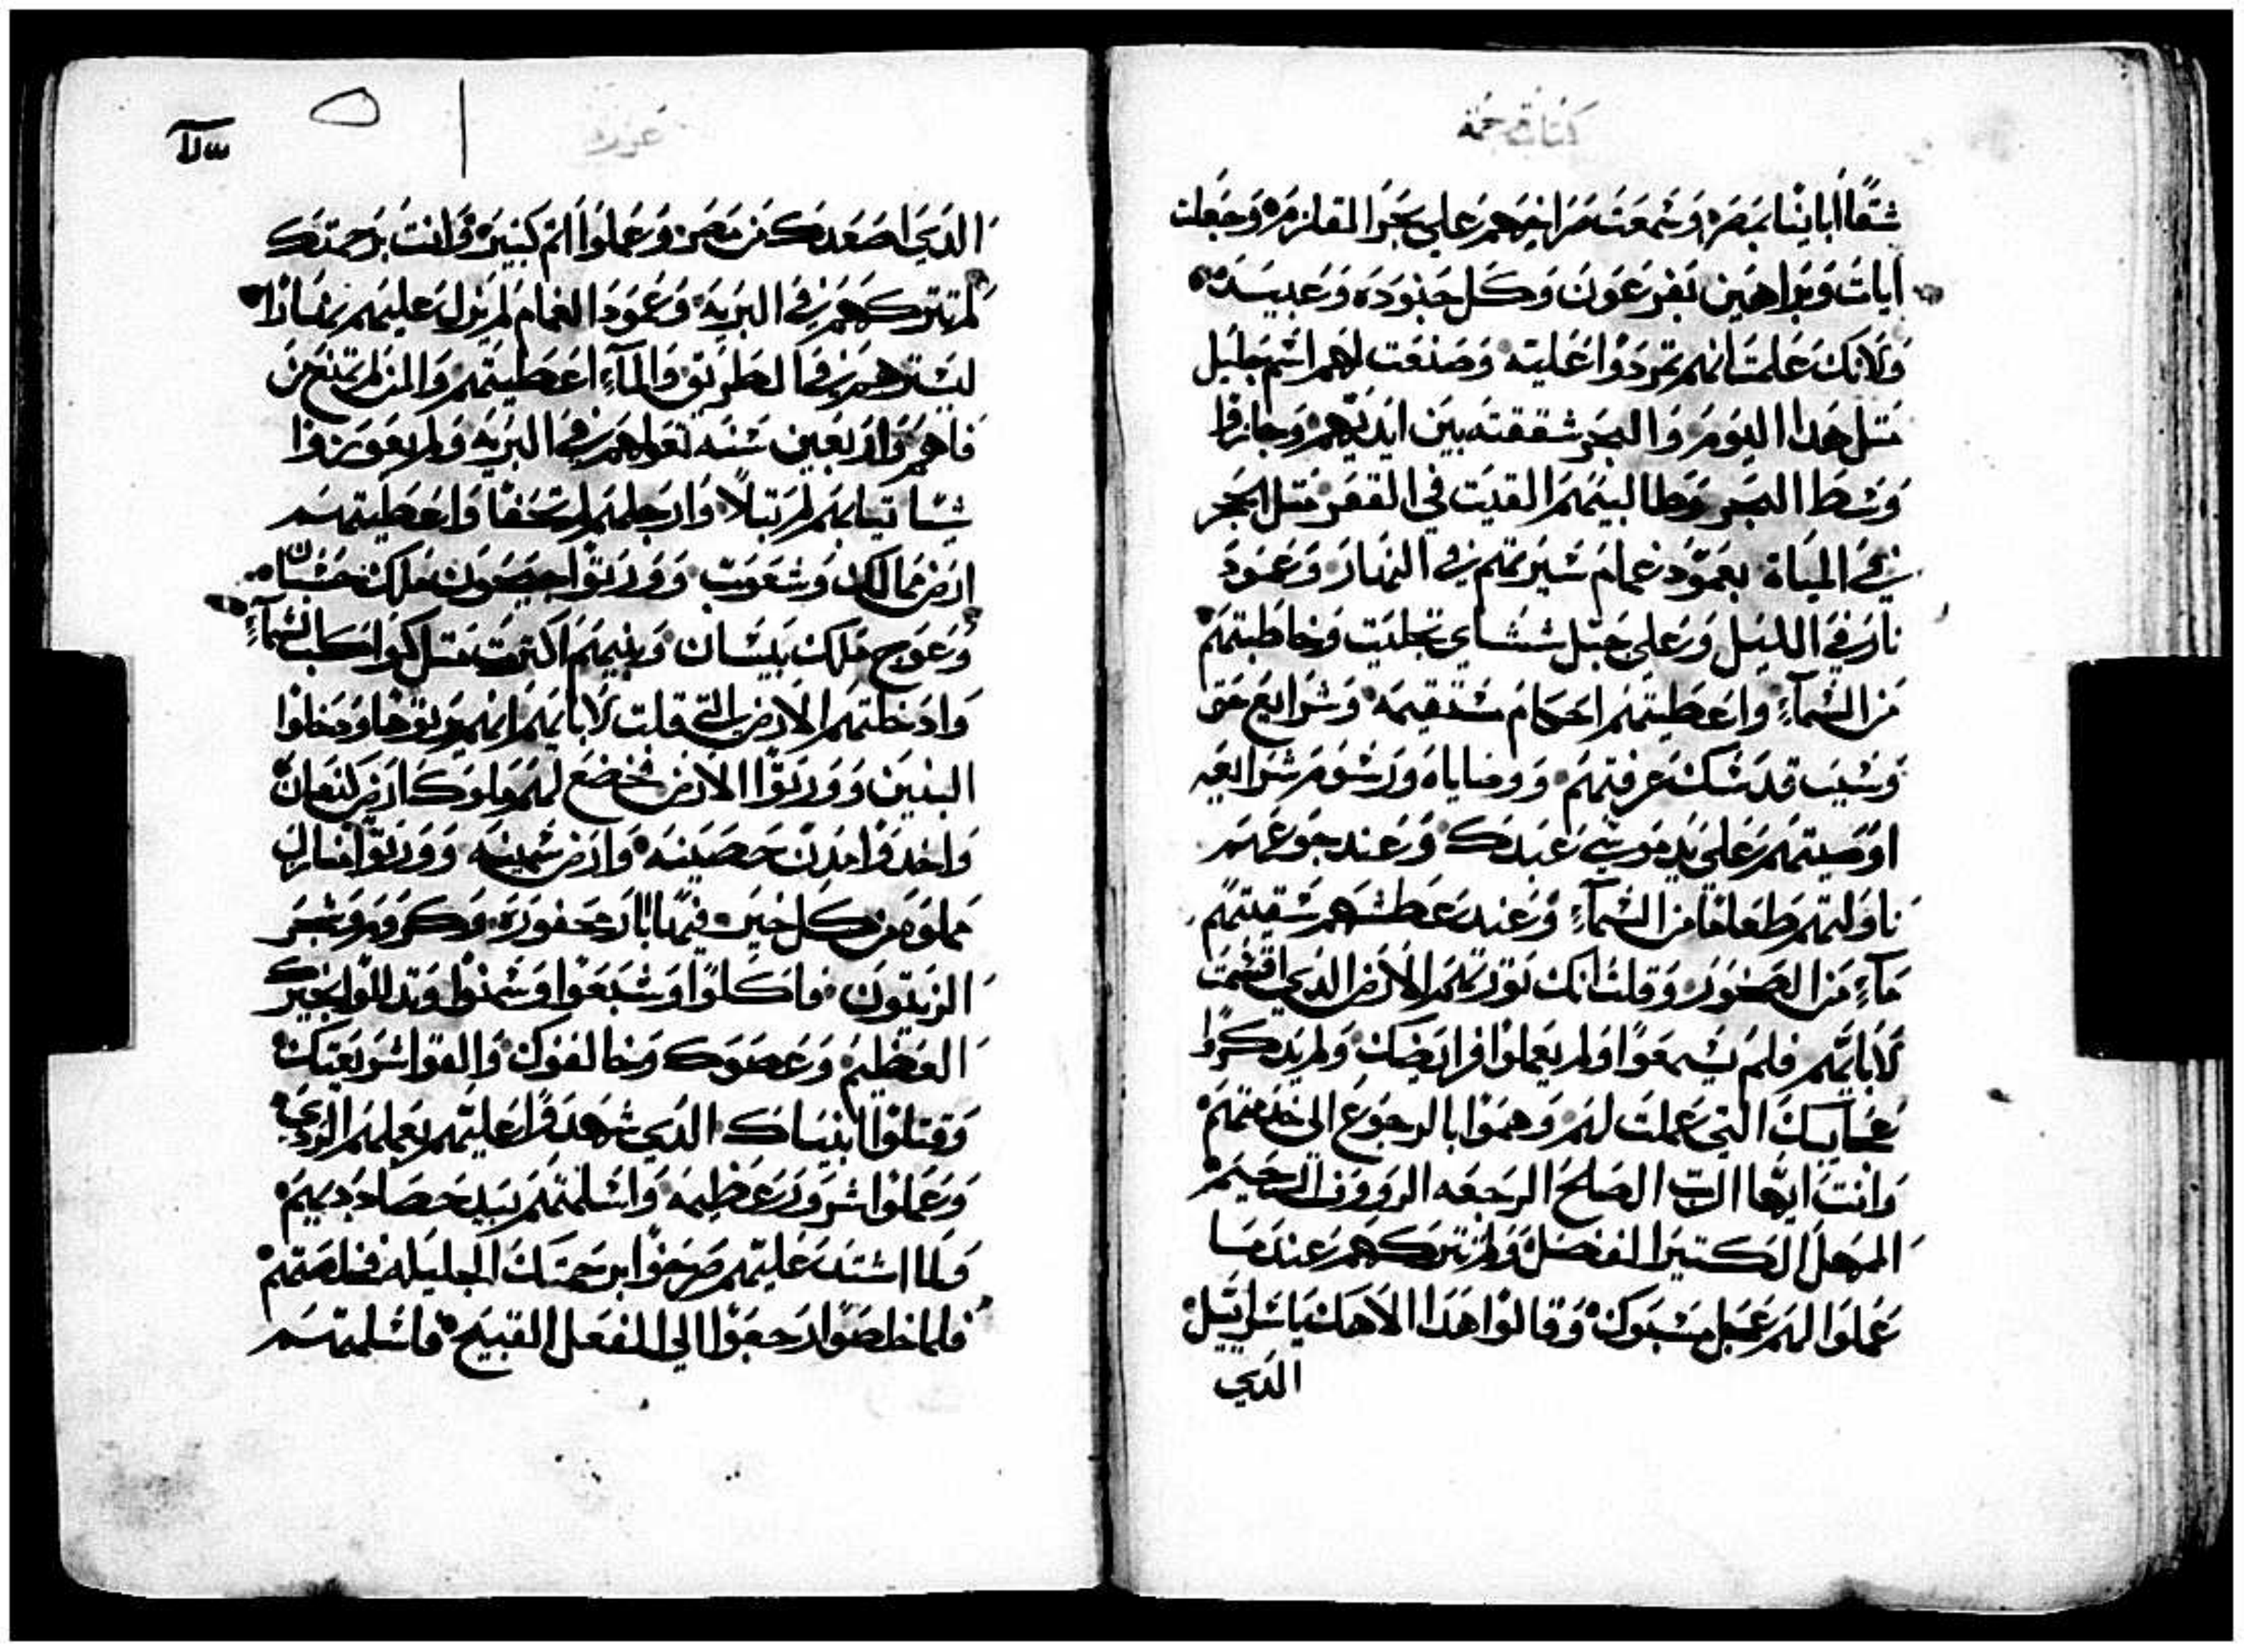 كتاب ترجمة
شقا أباينا بمصر وسمعت صراخهم علي بحر القلزم وجعلت
ايات وبراهين بفرعون وكل جنوده وعبيده
ولانك علمت انهم تمردوا عليه وصنعت لهم اسم جليل
متل هدا اليوم والبحر شققته بين ايديهم وجازوا
وسط البحر وطالبينهم القيت في القعر متل الحجر
في المياة بعمود غمام سيرتهم في النهار وعمود
نار في الليل وعلي جبل سيناي تجليت وخاطبتهم
من السماء واعطيتهم احكام مستقيمه وشرايع حق
وسبت قدسك عرفتهم ووصاياه ورسوم شرايعه
اوصيتهم علي يد موسي عبدك وعند جوعهم
ناولتهم طعاما من السماء وعند عطشهم سقيتهم
ماء من الصخور وقلت انك تورتهم الارض الدي اقسمت
لابايهم فلم يسمعوا ولم يعملوا فرايضك ولم يدكروا
عجايبك التي عملت لهم وهموا بالرجوع الي خدمتهم
وانت ايها الرب الصالح الرجعه الرووف الرحيم
المهل الكتير الفضل ولم تتركهم عندما
عملوا لهم عجل مسبوك وقالوا هدا الاهك ياسراييل
الدي
عزرا
الدي اصعدك من مصر وعملوا اتم كبير وانت برحمتك
لم تتركهم في البرية وعمود الغمام لم يزل عليهم نهارا
ليسترهم في الطريق والماء اعطيتهم والمن لم تمنع من
فاهم واربعين سنه تعولهم في البريه ولم يعوزوا
شيا تيابهم لم تبلا وارجلهم لم تحفا واعطيتهم
ارض ممالك وشعوب وورتوا حصون ملك حسبان
وعوج ملك بيسان وبنيهم اكترت متل كواكب السماء
وادخلتهم الارض التي قلت لابايهم انهم يرتوها ودخلوا
البنين وورتوا الارض وخضع لهم ملوك ارض كنعان
واخدوا مدن حصينه وارض سمينه وورتوا منازل
مملوه من كل خير فيها ابار محفوره وكروم وشجر
الزيتون فاكلوا وشبعوا وسمنوا وتدللوا بخيرك
العظيم وعصوك وخالفوك والقوا شريعتك
وقتلوا انبياك الدي شهدوا عليهم بعملهم الردي
وعملوا شرور عظيمه واسلمتهم بيد مضاددينهم
ولما اشتد عليهم صرخوا برحمتك الجليله فخلصتهم
فلما خلصوا رجعوا الي الفعل القبيح فاسلمتهم